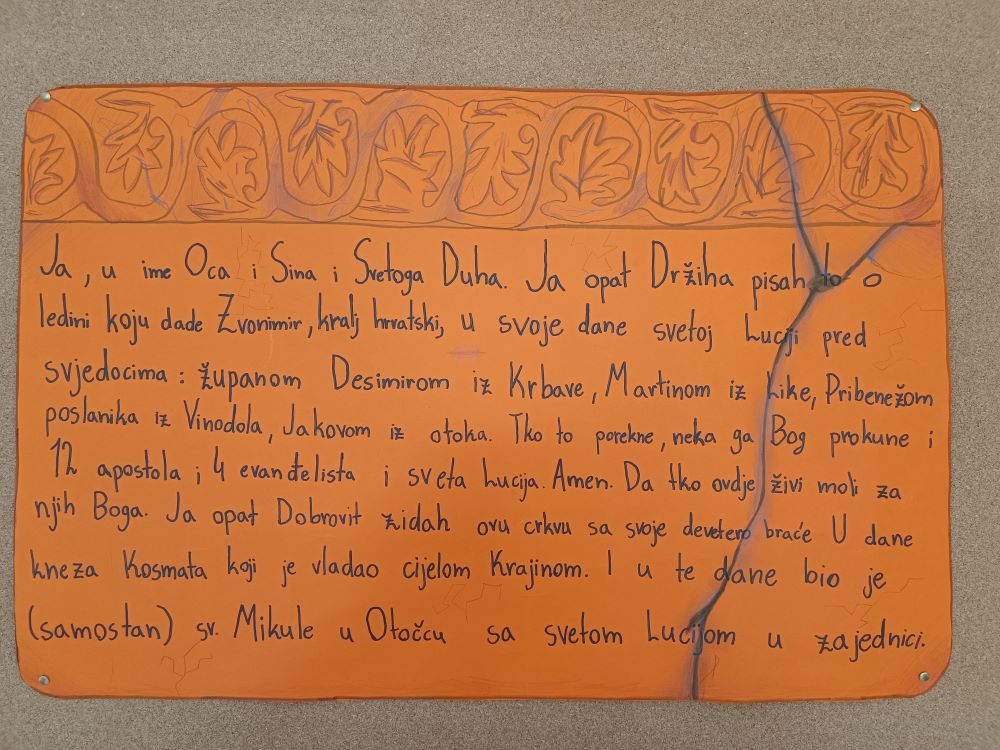 Ja, u ime Oca i Sina i Svetoga Duha. Ja opat Držiha pisah to o
ledini koju dade Zvonimir, kralj hrvatski, u svoje dane svetoj Luciji pred
svjedocima: županom Desimirom iz Krbave, Martinom iz Like, Pribenežom
poslanika iz Vinodola, Jakovom iz otoka. Tko to porekne, neka ga Bog prokune i
12 apostola i 4 evanđelista i sveta Lucija. Amen. Da tko ovdje živi moli za
njih Boga. Ja opat Dobrovit zidah ovu crkvu sa svoje devetero braće U dane
kneza Kosmata koji je vladao cijelom Krajinom. I u te dane bio je
(samostan) sv. Mikule u Otočcu sa svetom Lucijom u zajednici.